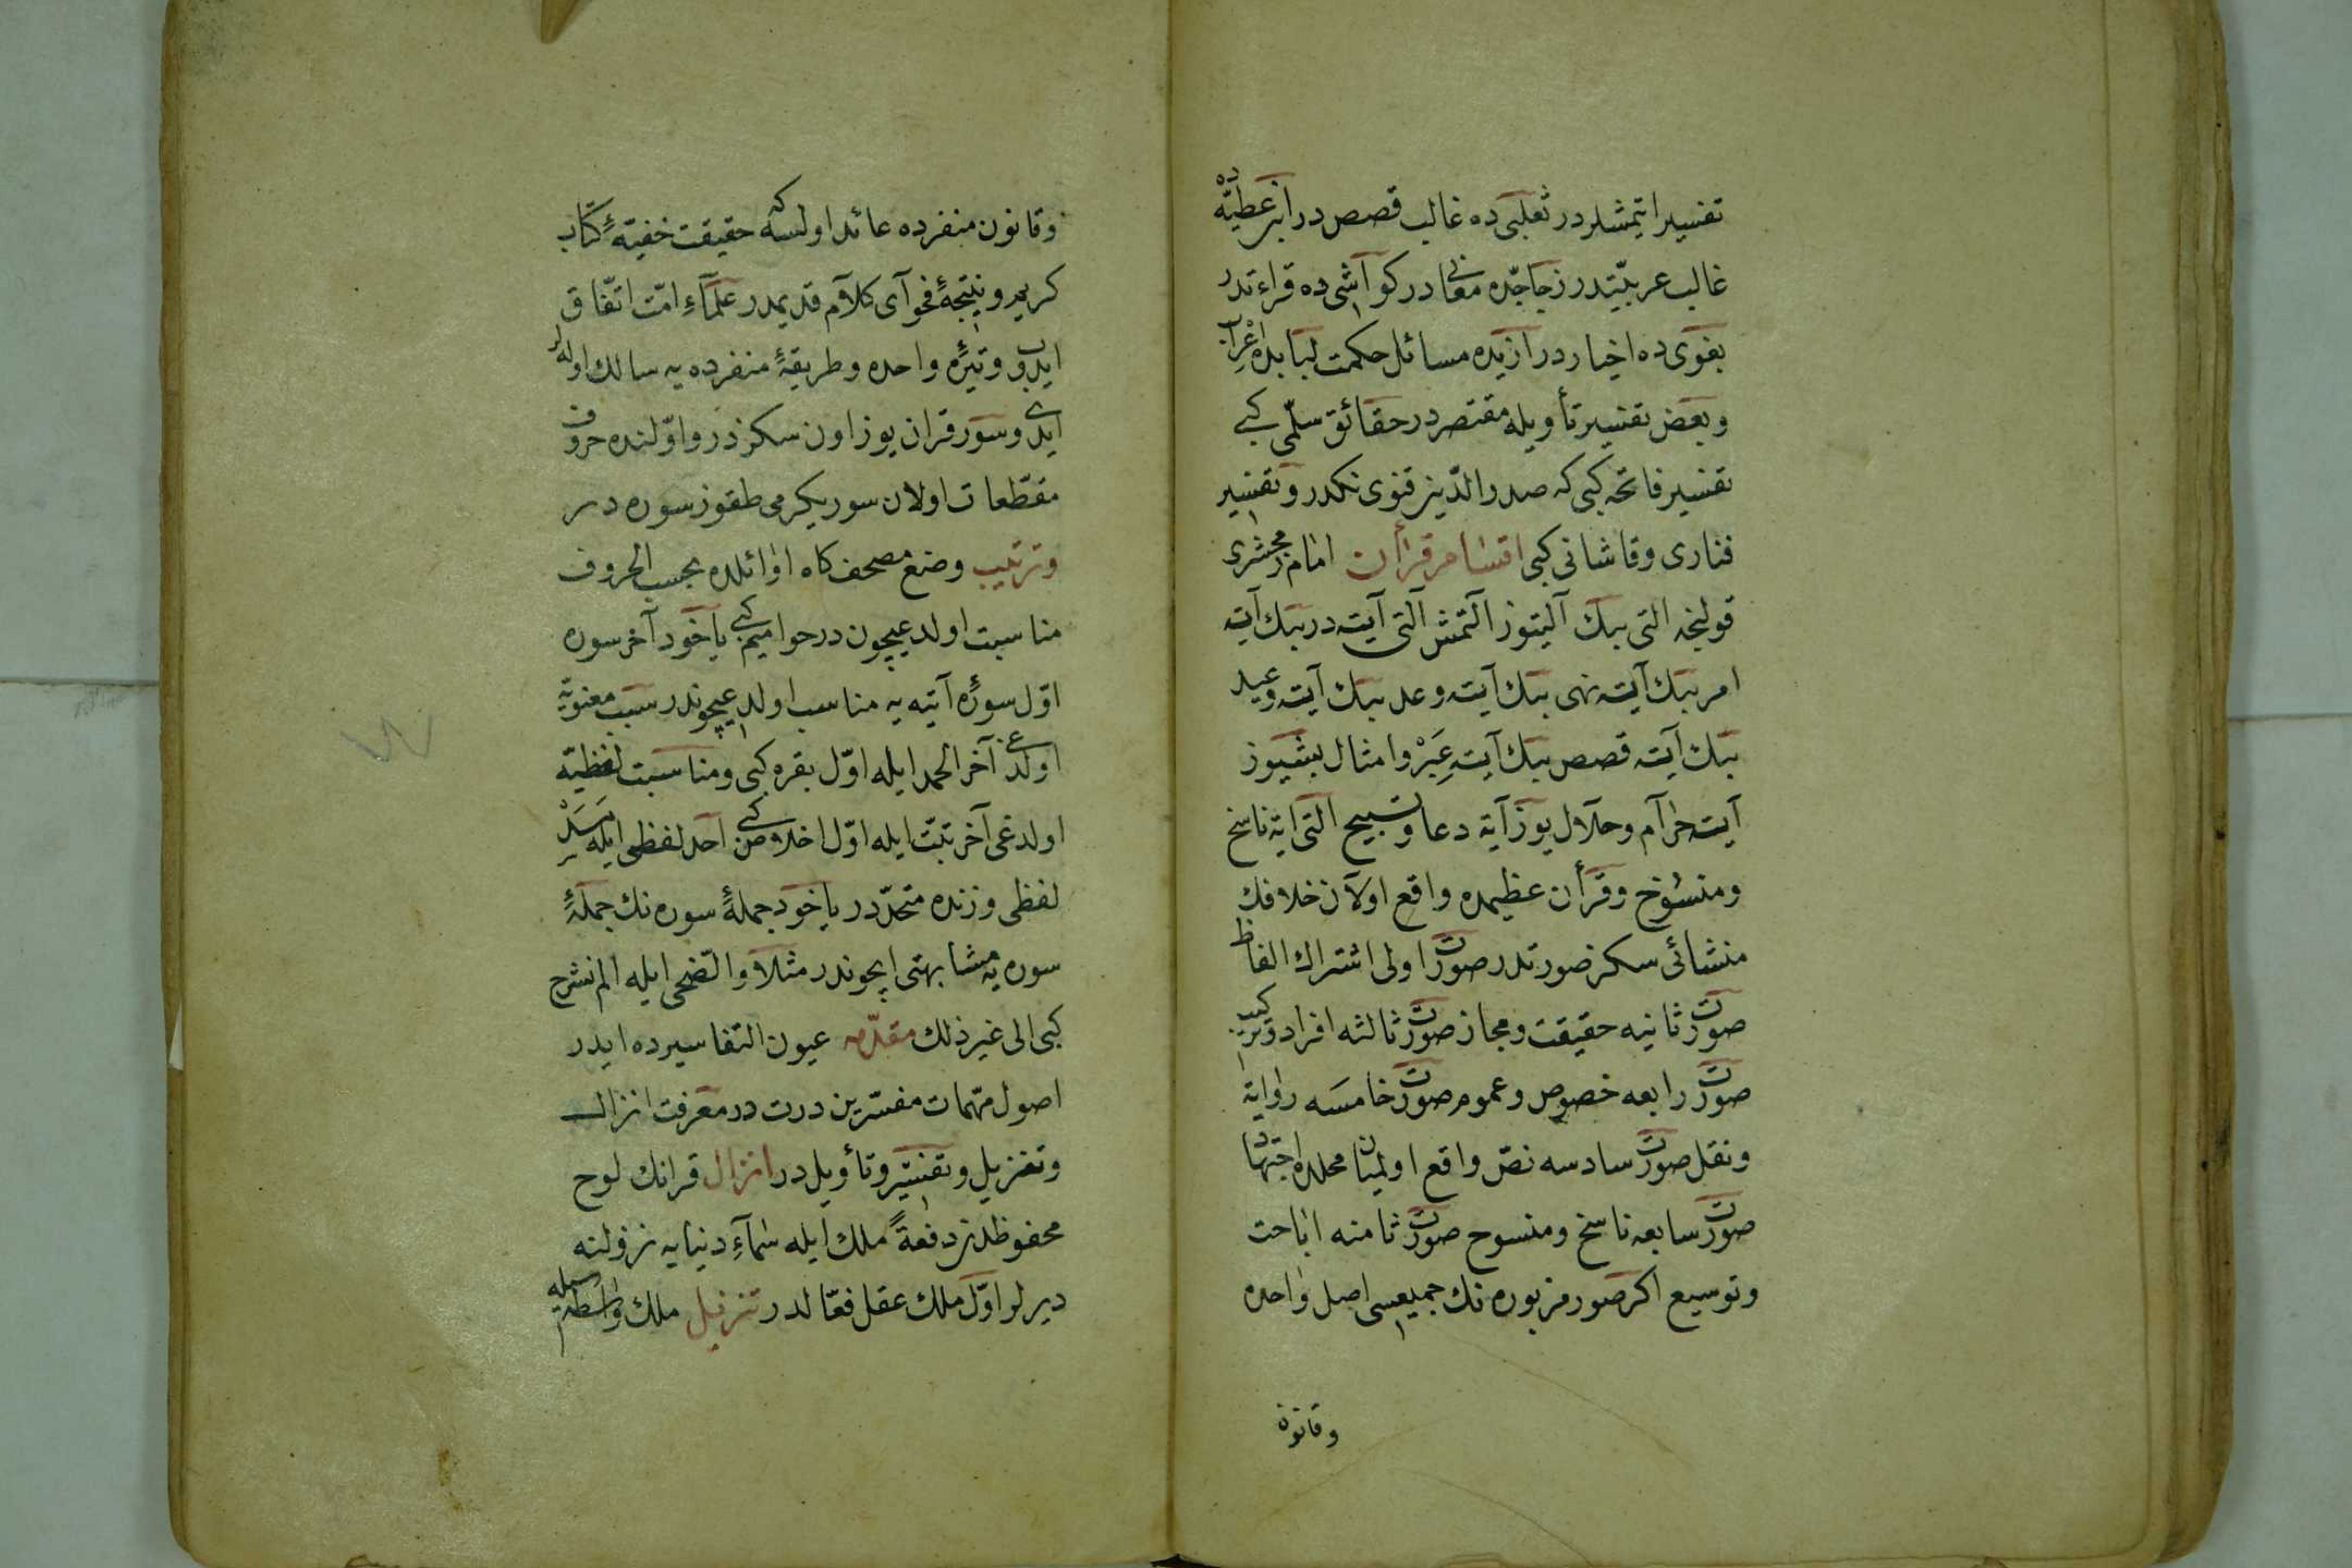 تفسير ايتمشلردر ثعلبى ده غالب قصص در ابن عطيّه ده
غالب عربيّتدر زجاجّده معانى در كواشى ده قراءتدر
بغوى ده اخبار در رازيده مسائل حكمت لبابده اعراب
وبعض تفسير تأويله مقتصر در حقائق سلّمى كبى
تفسير فاتحه كبى كه صدر الدّين قنوى نكدر وتفسير
فنارى وقاشانى كبى اقسام قرأن امام زمخشرى
قولنجه التى بيك آلتيوز آلتمش آلتى آيت در بيك آيت
امر بيك آيت نهى بيك آيت وعد بيك آيت وعيد
بيك آيت قصص بيك آيت عبَر وامثال بشيوز
آيت حرام وحلال يوز آية دعا وتسبيح التمش اية ناسخ
ومنسوخ وقرأن عظيمده واقع اولان خلافك
منشائى سكز صورتدر صورت اولى اشتراك الفاظ
صورت ثانيه حقيقت ومجاز صورت ثالثه افراد وتركيب
صورت رابعه خصوص وعموم صورت خامسه رواية
ونقل صورت سادسه نصّ واقع اولميان محلده اجتهاد
صورت سابعه ناسخ ومنسوخ صورت ثامنه اباحت
وتوسيع اكر صور مزبوره نك جميعسى اصل واحده
وقانون
وقانون منفرده عائد اولسه كه حقيقت خفيّهٔ كتاب
كريم ونتيجهٔ فحواى كلام قديمدر علماء امّت اتّفاق
ايدوب وتيرهٔ واحده وطريقهٔ منفرده يه سالك اولورلر
ايدى وسور قران يوز اون سكزدر واوّلنده حروف
مقطّعات اولان سور يكرمى طقوز سوره در
وترتيب وضع مصحف كاه اوائلده بحسب الحروف
مناسبت اولديغيچون در حواميم كبى ياخود آخر سوره
اوّل سورهٔ آتيه يه مناسب اولديغيچوندر سبب معنويّه
اولديغى آخر الحمد ايله اوّل بقره كبى ومناسبت لفظيّه
اولدغى آخر تبّت ايله اوّل اخلاص كبى احد لفظى ايله مسد
لفظى وزنده متحدّدر ياخود جملهٔ سوره نك جملهٔ
سوره يه مشابهتى ايچوندر مثلا والضّحى ايله الم نشرح
كبى الى غير ذلك مقدّمه عيون التفاسيرده ايدر
اصول مهمّات مفسّرين درت در معرفت انزال
وتنزيل وتفسير وتأويل در انزال قرانك لوح
محفوظدن دفعةً ملك ايله سماءِ دنيايه نزولنه
ديرلر اوّل ملك عقل فعّالدر تنزيل ملك واسطه سيله